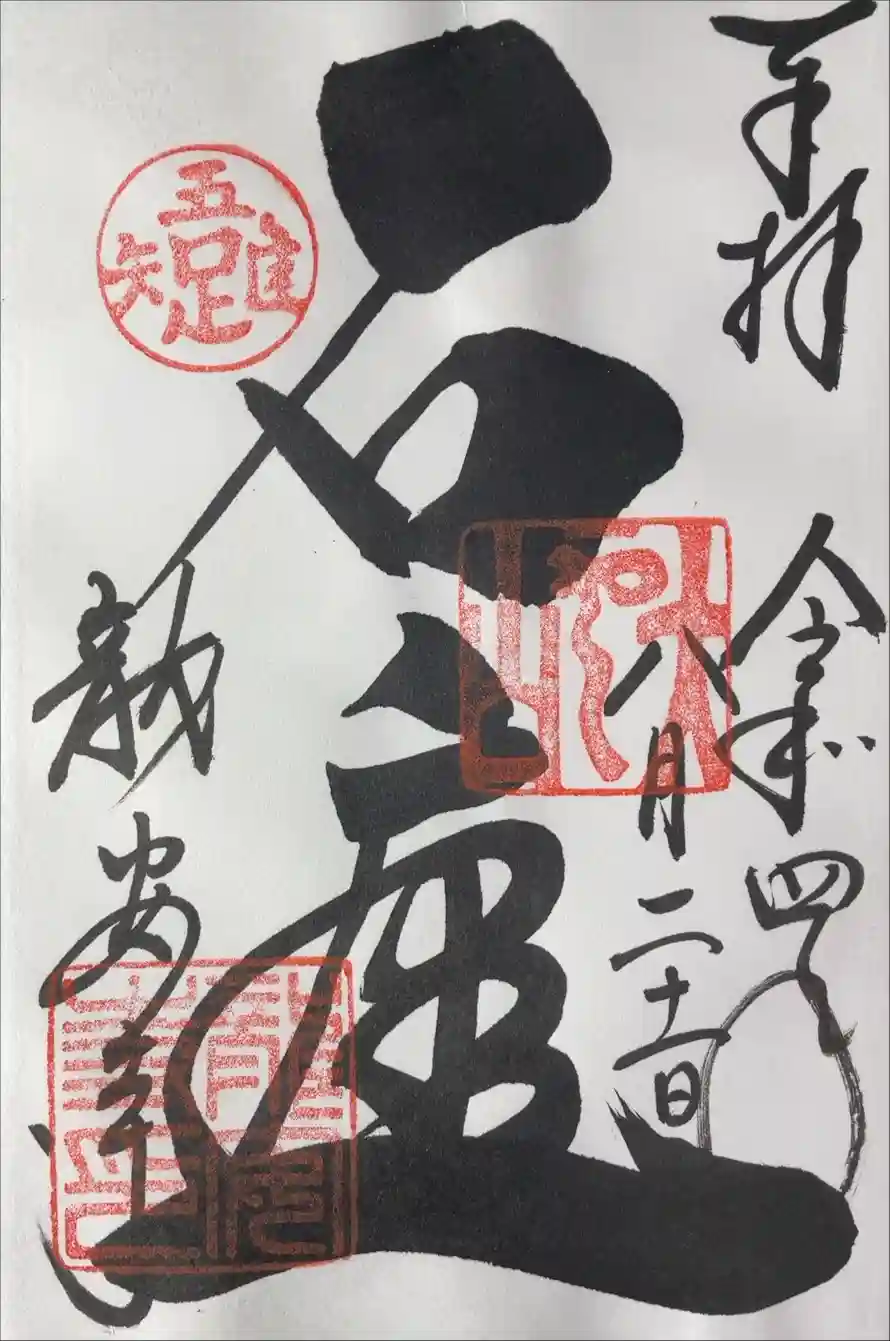 奉拝
令和四年
八月二十一日
石庭
吾唯足知
龍安寺
龍安寺印